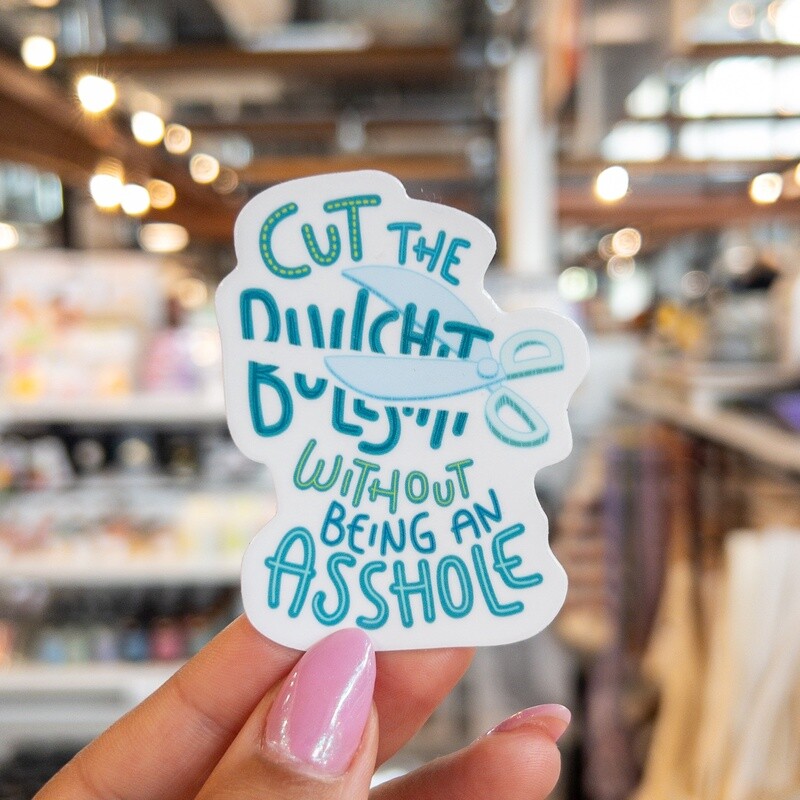 CUT THE
BULLSHIT
WITHOUT
BEING AN
ASSHOLE